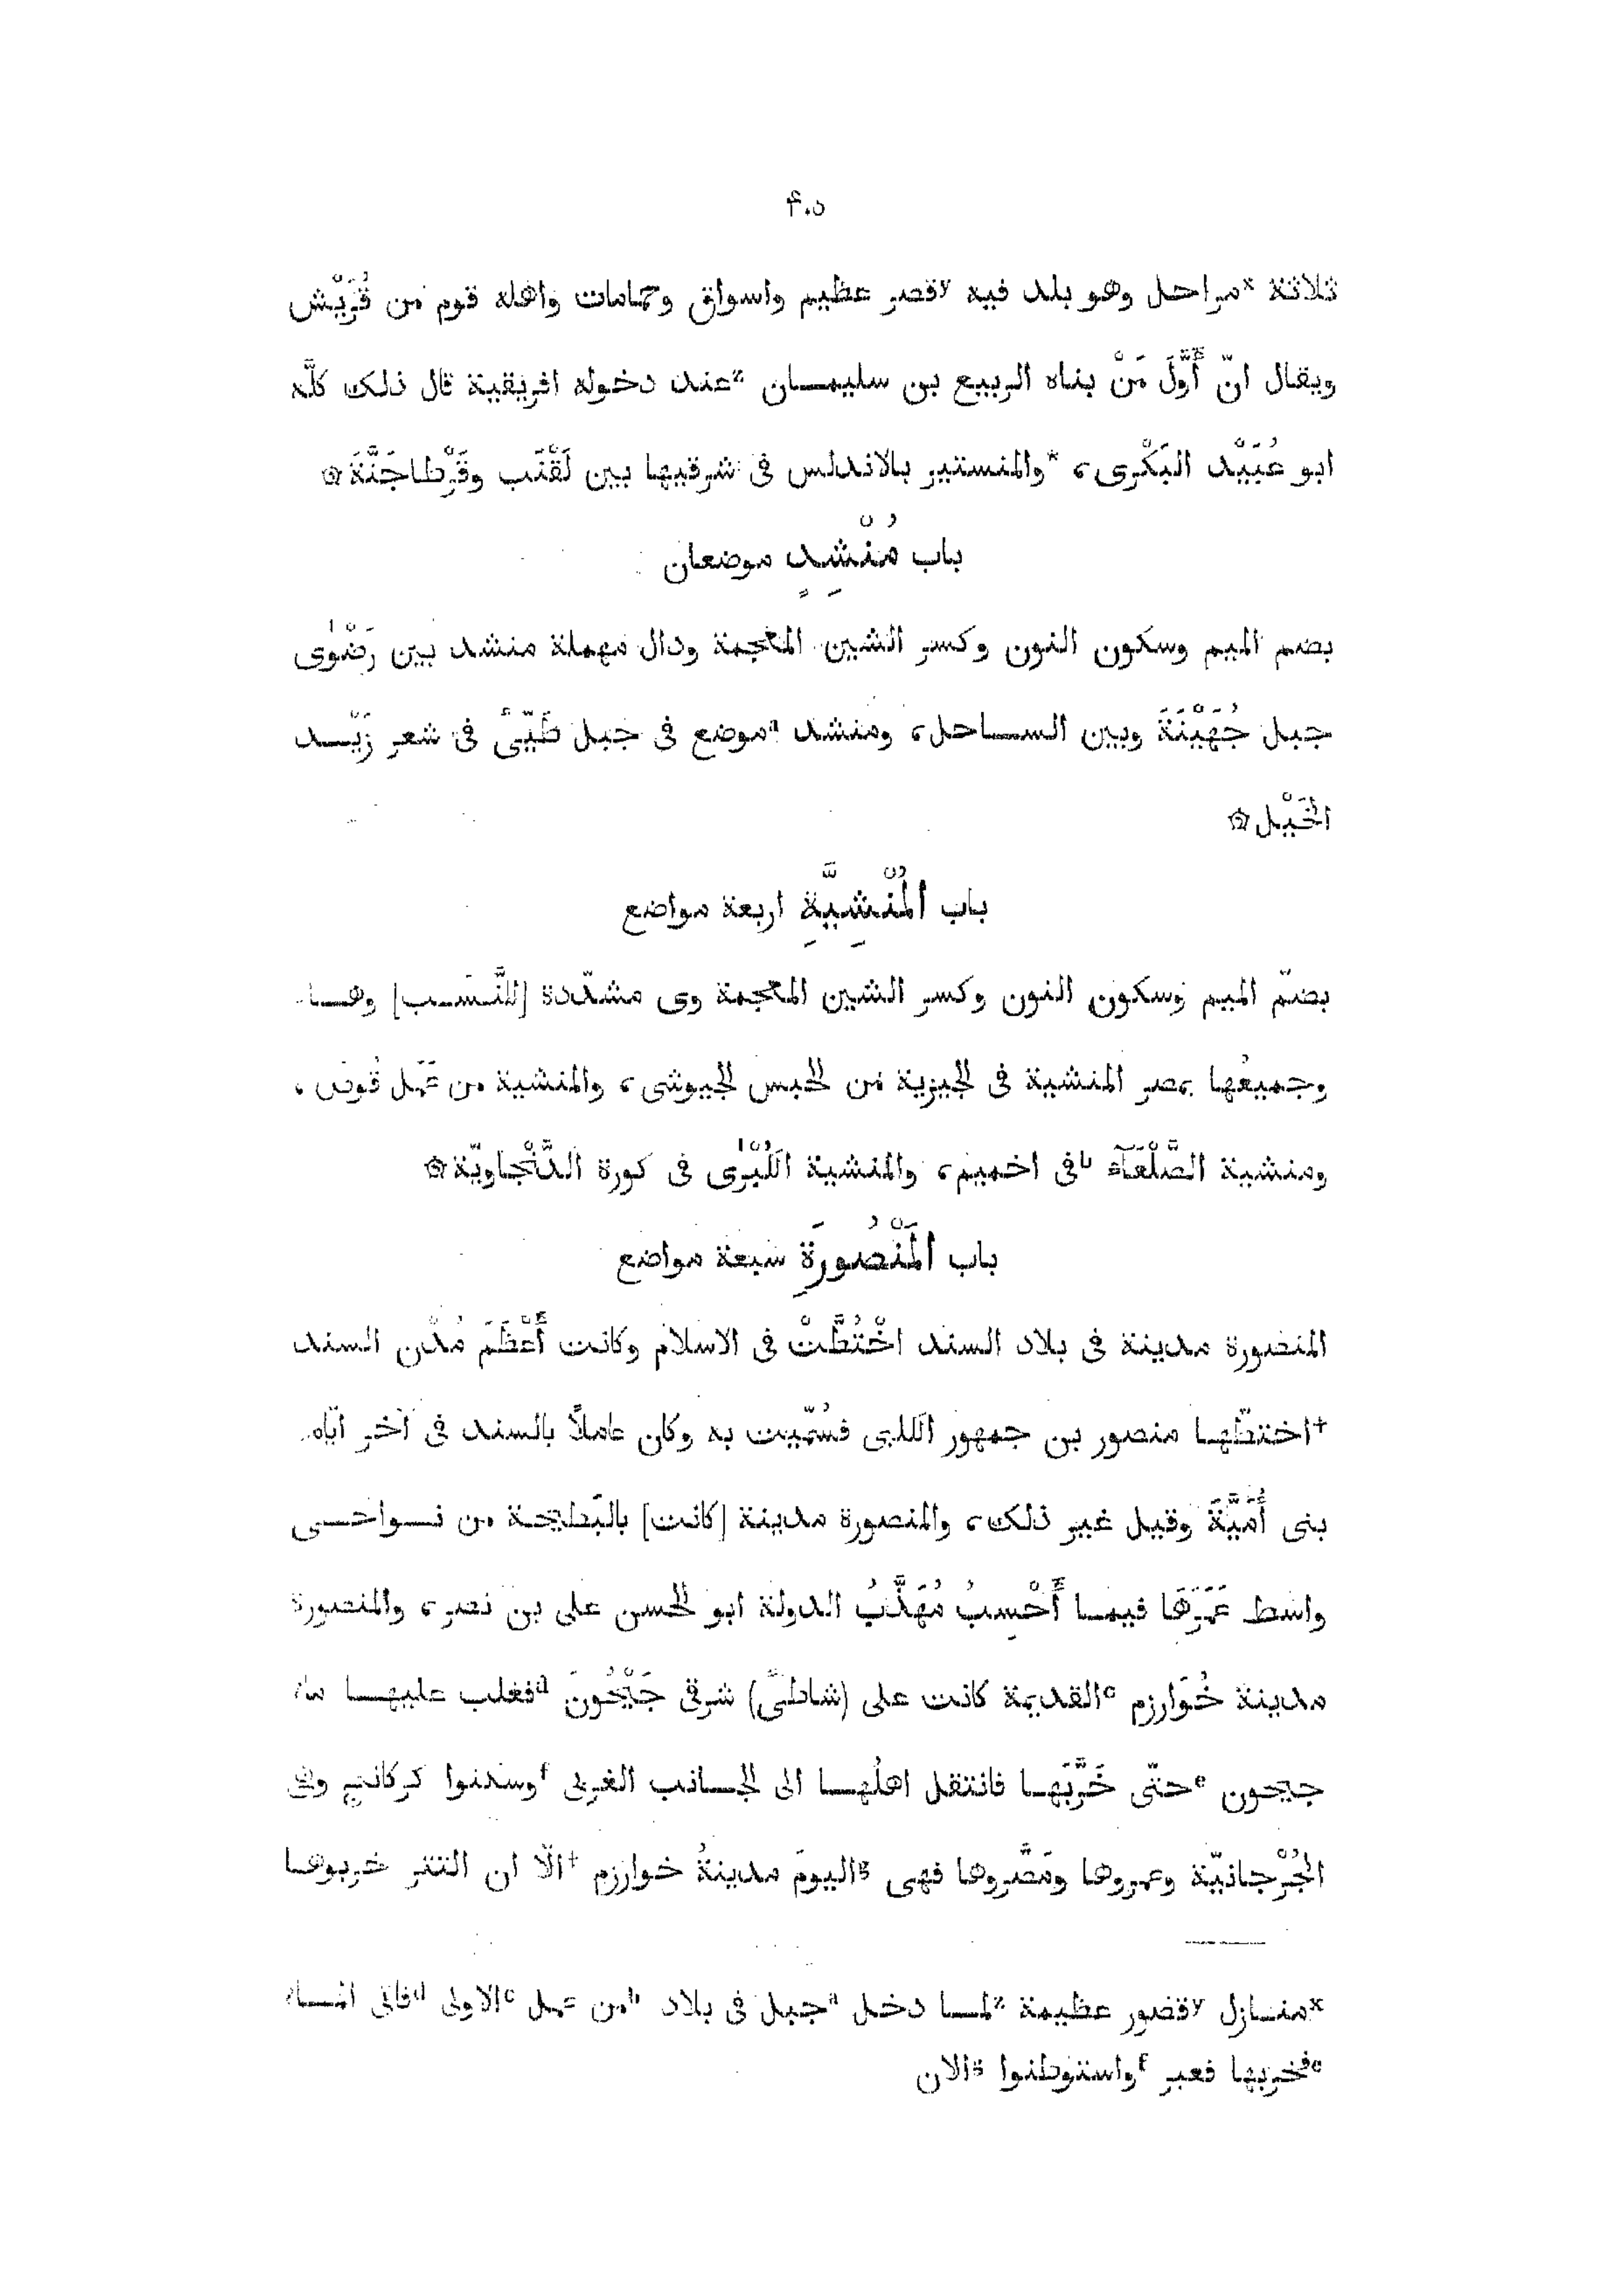 ۴۰۵
ثلاثة ˣمراحل وهو بلد فيه ʸقصر عظيم واسواق وحمامات واهله قوم من قُرَيْش
ويقال انّ أَوَّلَ مَنْ بناه الربيع بن سليمان ᶻعند دخوله افريقية قال ذلك كلّه
ابو عُبَيْد البَكْرى، *والمنستير بالاندلس فى شرقيها بين لَقَنْت وقَرْطاجَنَّةَ ۞
باب مُنْشِدٍ موضعان
بضم الميم وسكون النون وكسر الشين المعجمة ودال مهملة منشد بين رَضْوٰى
جبل جُهَيْنَةَ وبين الساحل، ومنشد ᵃموضع فى جبل طَيِّئ فى شعر زَيْد
الخَيْل ۞
باب ٱلْمُنْشِيَّةِ اربعة مواضع
بضمّ الميم وسكون النون وكسر الشين المعجمة وى مشدّدة [للنَّسَب] وهـا
وجميعُها بمصر المنشية فى الجيزية من الحبس الجيوشى، والمنشية من عَمَل قُوص،
ومنشية الصَّلْعَآء ᵇفى اخميم، والمنشية الكُبْرٰى فى كورة الدَّنْجاويّة ۞
باب ٱلْمَنْصُورَةِ سبعة مواضع
المنصورة مدينة فى بلاد السند اخْتُطَّتْ فى الاسلام وكانت أَعْظَمَ مُدْن السند
†اختطّها منصور بن جمهور الكلبى فسُمّيت به وكان عاملًا بالسند فى آخر ايّام
بنى أُمَيَّةَ وقيل غير ذلك، والمنصورة مدينة [كانت] بالبَطيحة من نواحى
واسط عَمَرَهَا فيما أَحْسِبُ مُهَذَّبُ الدولة ابو الحسن على بن نصر، والمنصورة
مدينة خُوَارزم ᶜالقديمة كانت على (شاطئ) شرقى جَيْحُونَ ᵈفغلب عليها ماء
جيحون ᵉحتّى خَرَّبَها فانتقل اهلُها الى الجانب الغربى ᶠوسكنوا كركانج وهى
الجُرْجانيّة وعمروها ومَصَّروها فهى ᵍاليومَ مدينةُ خوارزم †الّا ان التتر خربوها
ˣمنازل ʸقصور عظيمة ᶻلما دخل ᵃجبل فى بلاد ᵇمن عمل ᶜالاولى ᵈفاتى الماء
ᵉفخربها فعبر ᶠواستوطنوا ᵍالان